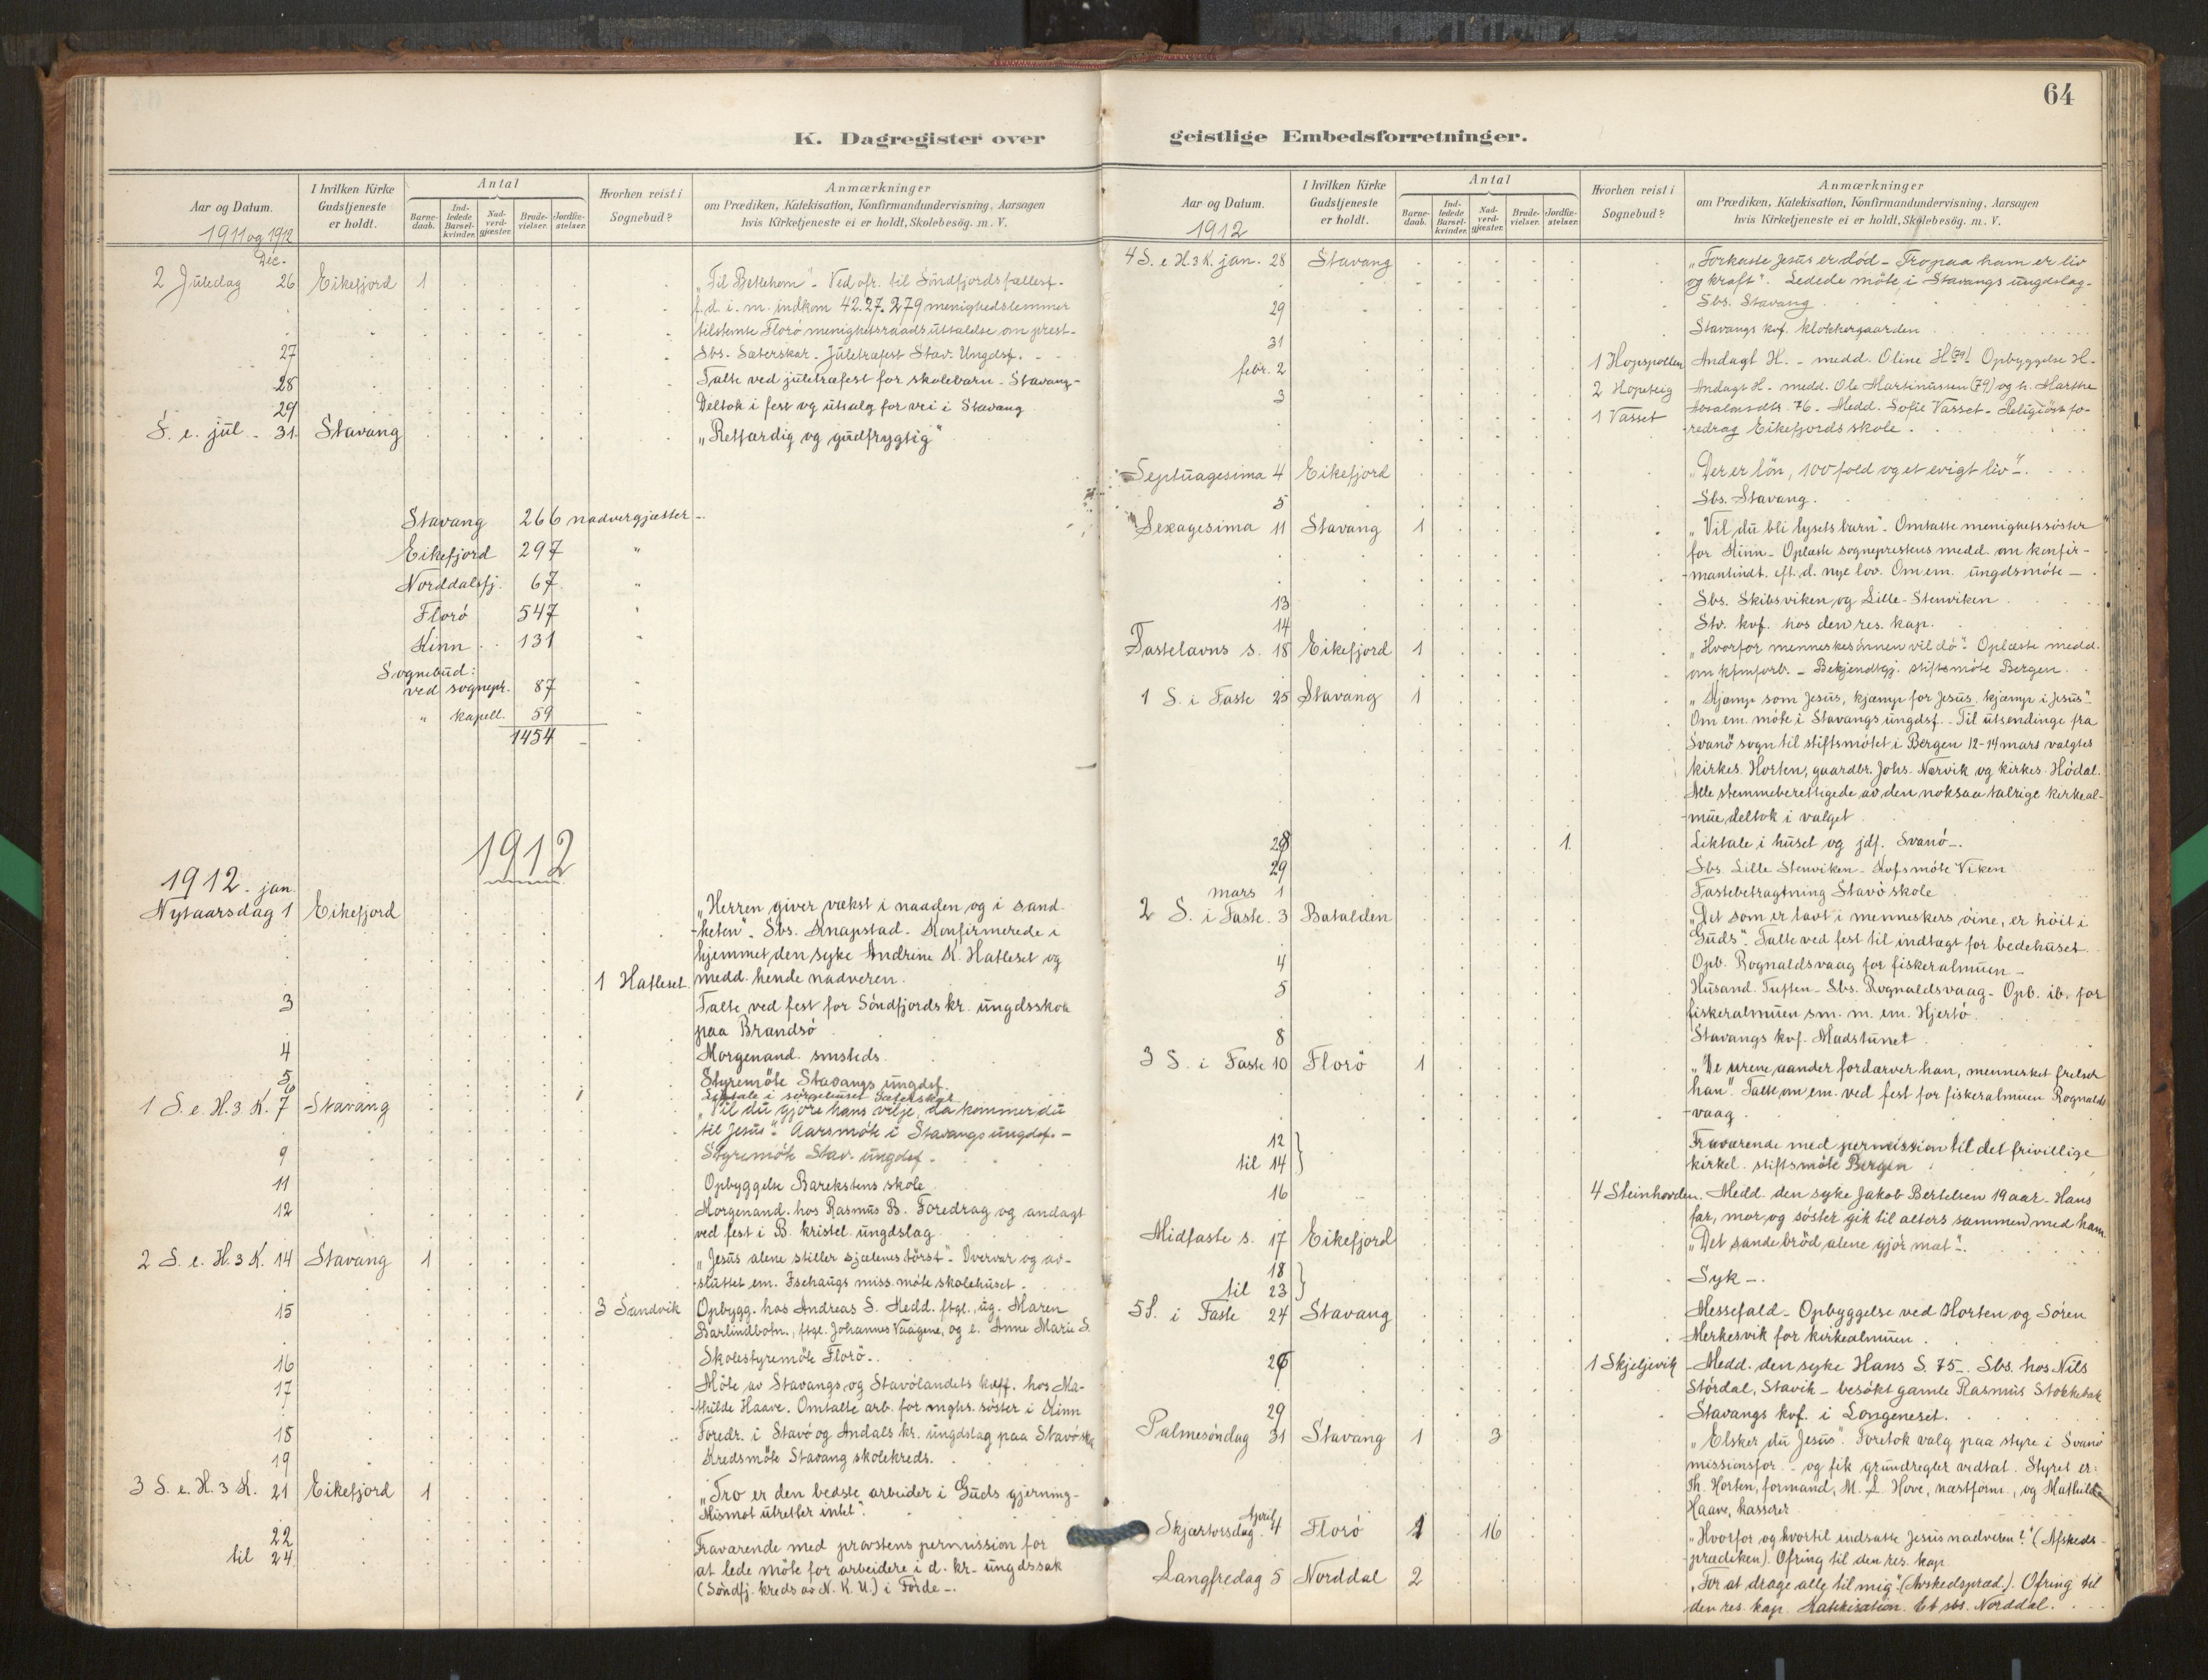 64
K. Dagregister over
Aar og Datum.
1911 og 1912
I hvilken Kirke Gudstjeneste er holdt.
Antal
Barne-daab.
Ind-ledede Barsel-kvinder.
Nad-verd-gjæster.
Brude-vielser.
Jordfæ-stelser.
Hvorhen reist i Sognebud?
Anmærkninger
om Prædiken, Katekisation, Konfirmandundervisning, Aarsagen
hvis Kirketjeneste ei er holdt, Skolebesög. m. V.
Dec.
2 Juledag 26 Eikefjord 1 „Til Betlehem“ - Ved ofr. til Söndfjords fællesf.
f. d. i. m. indkom 42.27. 279 menighedslemmer
tilstemte Florö menighetsraads uttalelse om prest-
27 Sbs. Sæterskar. Juletræfest Stav. Ungdsf.
28 Talte ved juletræfest for skolebarn - Stavang -
29 Deltok i fest og utsalg for vei i Stavang
S. e. jul - 31 Stavang „Retfærdig og gudfrygtig“
Stavang 266 nadvergjæster -
Eikefjord 297 "
Norddalsfj. 67 "
Florö 547 "
Kinn 131 "
Sognebud:
ved sognepr. 87 "
" kapell. 59 "
1454
1912
1912. jan.
Nytaarsdag 1 Eikefjord „Herren giver vækst i naaden og i sand-
heten“. Sbs. Knapstad. Konfirmerede i
hjemmet den syke Andrine K. Hatleset og
1 Hatleset medd. hende nadveren.
3 Talte ved fest for Söndfjords kr. ungdsskole
paa Brandsö
4 Morgenand. smsteds.
5 Styremöte Stavangs ungdsf.
6 1 Liktale i sörgehuset Sæterskar
1 S. e. H. 3 K. 7 Stavang „Vil du gjöre hans vilje, da kommer du
til Jesus“. Aarsmöte i Stavangs ungdsf. -
9 Styremöte Stav. ungdsf.
11 Opbyggelse Barekstens skole
12 Morgenand. hos Rasmus B. Foredrag og andagt
ved fest i B. kristel. ungdslag
2 S. e. H. 3 K. 14 Stavang 1 „Jesus alene stiller sjælens törst“. Overvar og av-
sluttet em. Eschaugs miss. möte skolehuset.
15 3 Sandvik Opbygg. hos Andreas S. Medd. ftgl. ug. Maren
Barlindbotn., ftgl. Johannes Vaagene, og e. Anne Marie S.
16 Skolestyremöte Florö.
17 Möte av Stavangs og Stavölandets kvff. hos Ma-
thilde Haave. Omtalte arb. for mghs. söster i Kinn
18 Foredr. i Stavö og Andals kr. ungdslag paa Stavö sk.
19 Kredsmöte Stavang skolekreds.
3 S. e. H. 3 K. 21 Eikefjord 1 „Tro er den bedste arbeider i Guds gjerning -
Mismot utretter intet“.
22
til 24 Fraværende med provstens permission for
at lede möte for arbeidere i d. kr. ungdssak
(Söndfj. kreds av N. K. U.) i Förde -.
geistlige Embedsforretninger.
Aar og Datum.
1912
I hvilken Kirke Gudstjeneste er holdt.
Antal
Barne-daab.
Ind-ledede Barsel-kvinder.
Nad-verd-gjæster.
Brude-vielser.
Jordfæ-stelser.
Hvorhen reist i Sognebud?
Anmærkninger
om Prædiken, Katekisation, Konfirmandundervisning, Aarsagen
hvis Kirketjeneste ei er holdt, Skolebesög. m. V.
4 S. e. H. 3 K. jan. 28 Stavang „Forkaste Jesus er död - Tro paa ham er liv
og kraft“. Ledede möte i Stavangs ungdslag -
Sbs. Stavang
29 Stavangs kvf. klokkergaarden
31 1 Hopspollen Andagt H. - medd. Oline H (79). Opbyggelse H.
febr. 2 2 Hopsteig Andagt H. medd. Ole Martinussen (79) og h. Marthe
3 1 Vasset Absalonsdtr. 76 - Medd. Sofie Vasset - Religiöst fo-
redrag Eikefjords skole.
Septuagesima 4 Eikefjord „Der er lön, 100 fold og et evigt liv“.
5 Sbs. Stavang.
Sexagesima 11 Stavang 1 „Vil du bli lysets barn“ - Omtalte menighetssöster
for Kinn - Oplæste sogneprestens medd. om konfir-
mantindt. eft. d. nye lov. Om em. ungdsmöte -
13 Sbs. Skibsviken og Lille-Stenviken
14 Stv. kvf. hos den res. kap.
Fastelavns s. 18 Eikefjord 1 „Hvorfor menneskesönnen vil dö“. Oplæste medd.
om kfmforb. - Bekjendtgj. stiftsmöte Bergen.
1 S. i Faste 25 Stavang 1 „Kjæmp som Jesus, kjæmp for Jesus, kjæmp i Jesus“
Om em. möte i Stavangs ungdsf. - Til utsendinge fra
Svanö sogn til stiftsmötet i Bergen 12-14 mars valgtes
kirkes. Horten, gaardbr. Johs. Nærvik og kirkes. Hödal.
Alle stemmeberettigede av den noksaa talrige kirkeal-
mue deltok i valget
28 1. Liktale i huset og jdf. Svanö -.
29 Sbs. Lille Stenviken - Kvfsmöte Viken
mars 1 Fastebetragtning Stavö skole
2 S. i Faste. 3 Batalden „Det som er lavt i menneskers öine, er höit i
Guds“. Talte ved fest til indtægt for bedehuset.
4 Opb. Rognaldsvaag for fiskeralmuen -
5 Husand. Tuften - Sbs. Rognaldsvaag - Opb. ib. for
fiskeralmuen sm. m. em. Hjertö.
8 Stavangs kvf. Madstunet
3 S. i Faste 10 Florö 1 „De urene aander fordærver han, mennesket frelser
han“. Talte om em. ved fest for fiskeralmuen Rognalds
vaag.
12
til 14 Fraværende med permission til det frivillige
kirkel. stiftsmöte Bergen
16 4 Steinhovden. Medd. den syke Jakob Bertelsen 19 aar - Hans
far, mor og söster gik til alters sammen med ham.
Midfaste s. 17 Eikefjord „Det sande bröd alene gjör mæt“.
18
til 23 Syk -.
5 S. i Faste 24 Stavang Messefald - Opbyggelse ved Horten og Sören
Merkesvik for kirkealmuen.
26 1 Skjeljevik Medd. den syke Hans S. 75 -. Sbs. hos Nils
Stördal, Stavik - besökt gamle Rasmus Stokkebæk
29 Stavangs kvf. i Longeneset.
Palmesöndag 31 Stavang 1 3 „Elsker du Jesus“. Foretok valg paa styre i Svanö
missionsfor. - og fik grundregler vedtat. Styret er:
Th. Horten, formand, M. S. Hove, næstform., og Mathilde
Haave, kasserer
April
Skjærtorsdag. 4 Florö 1 16 „Hvorfor og hvortil indsatte Jesus nadveren?“ (Afskeds-
prædiken). Ofring til den res. kap.
Langfredag 5 Norddal 2 „For at drage alle til mig“. (Avskedspræd.). Ofring til
den res. kap. Katekisation. Et sbs. Norddal.